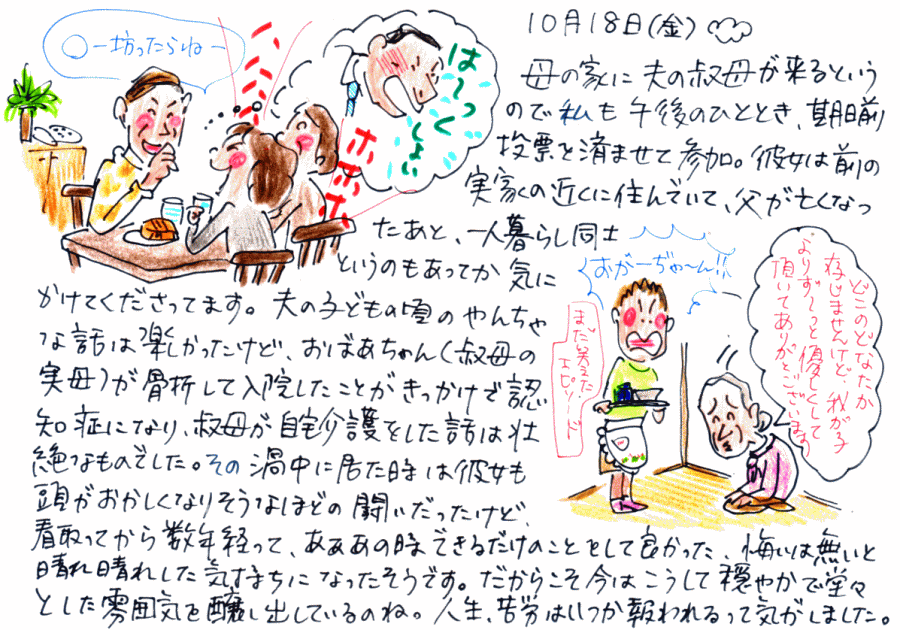 10月18日(金)
母の家に夫の叔母が来るという
ので私も午後のひととき、期日前
投票を済ませて参加。彼女は前の
実家の近くに住んでいて、父が亡くなっ
たあと、一人暮らし同士
というのもあってか気に
かけてくださってます。夫の子どもの頃のやんちゃ
な話は楽しかったけど、おばあちゃん(叔母の
実母)が骨折して入院したことがきっかけで認
知症になり、叔母が自宅介護をした話は壮
絶なものでした。その渦中に居た時は彼女も
頭がおかしくなりそうなほどの闘いだったけど、
看取ってから数年経って、あぁあの時できるだけのことをして良かった、悔いは無いと
晴れ晴れした気持ちになったそうです。だからこそ今はこうして穏やかで堂々
とした雰囲気を醸し出しているのね。人生、苦労はいつか報われるって気がしました。
〇一坊ったらね
は〜っく
しょい
ホホホ
おがーぢゃーん!!
まだ笑えた
エピソードだ
どこのどなたか
存じませんけど、我が子
よりず〜っと優しくして
頂いてありがとございます